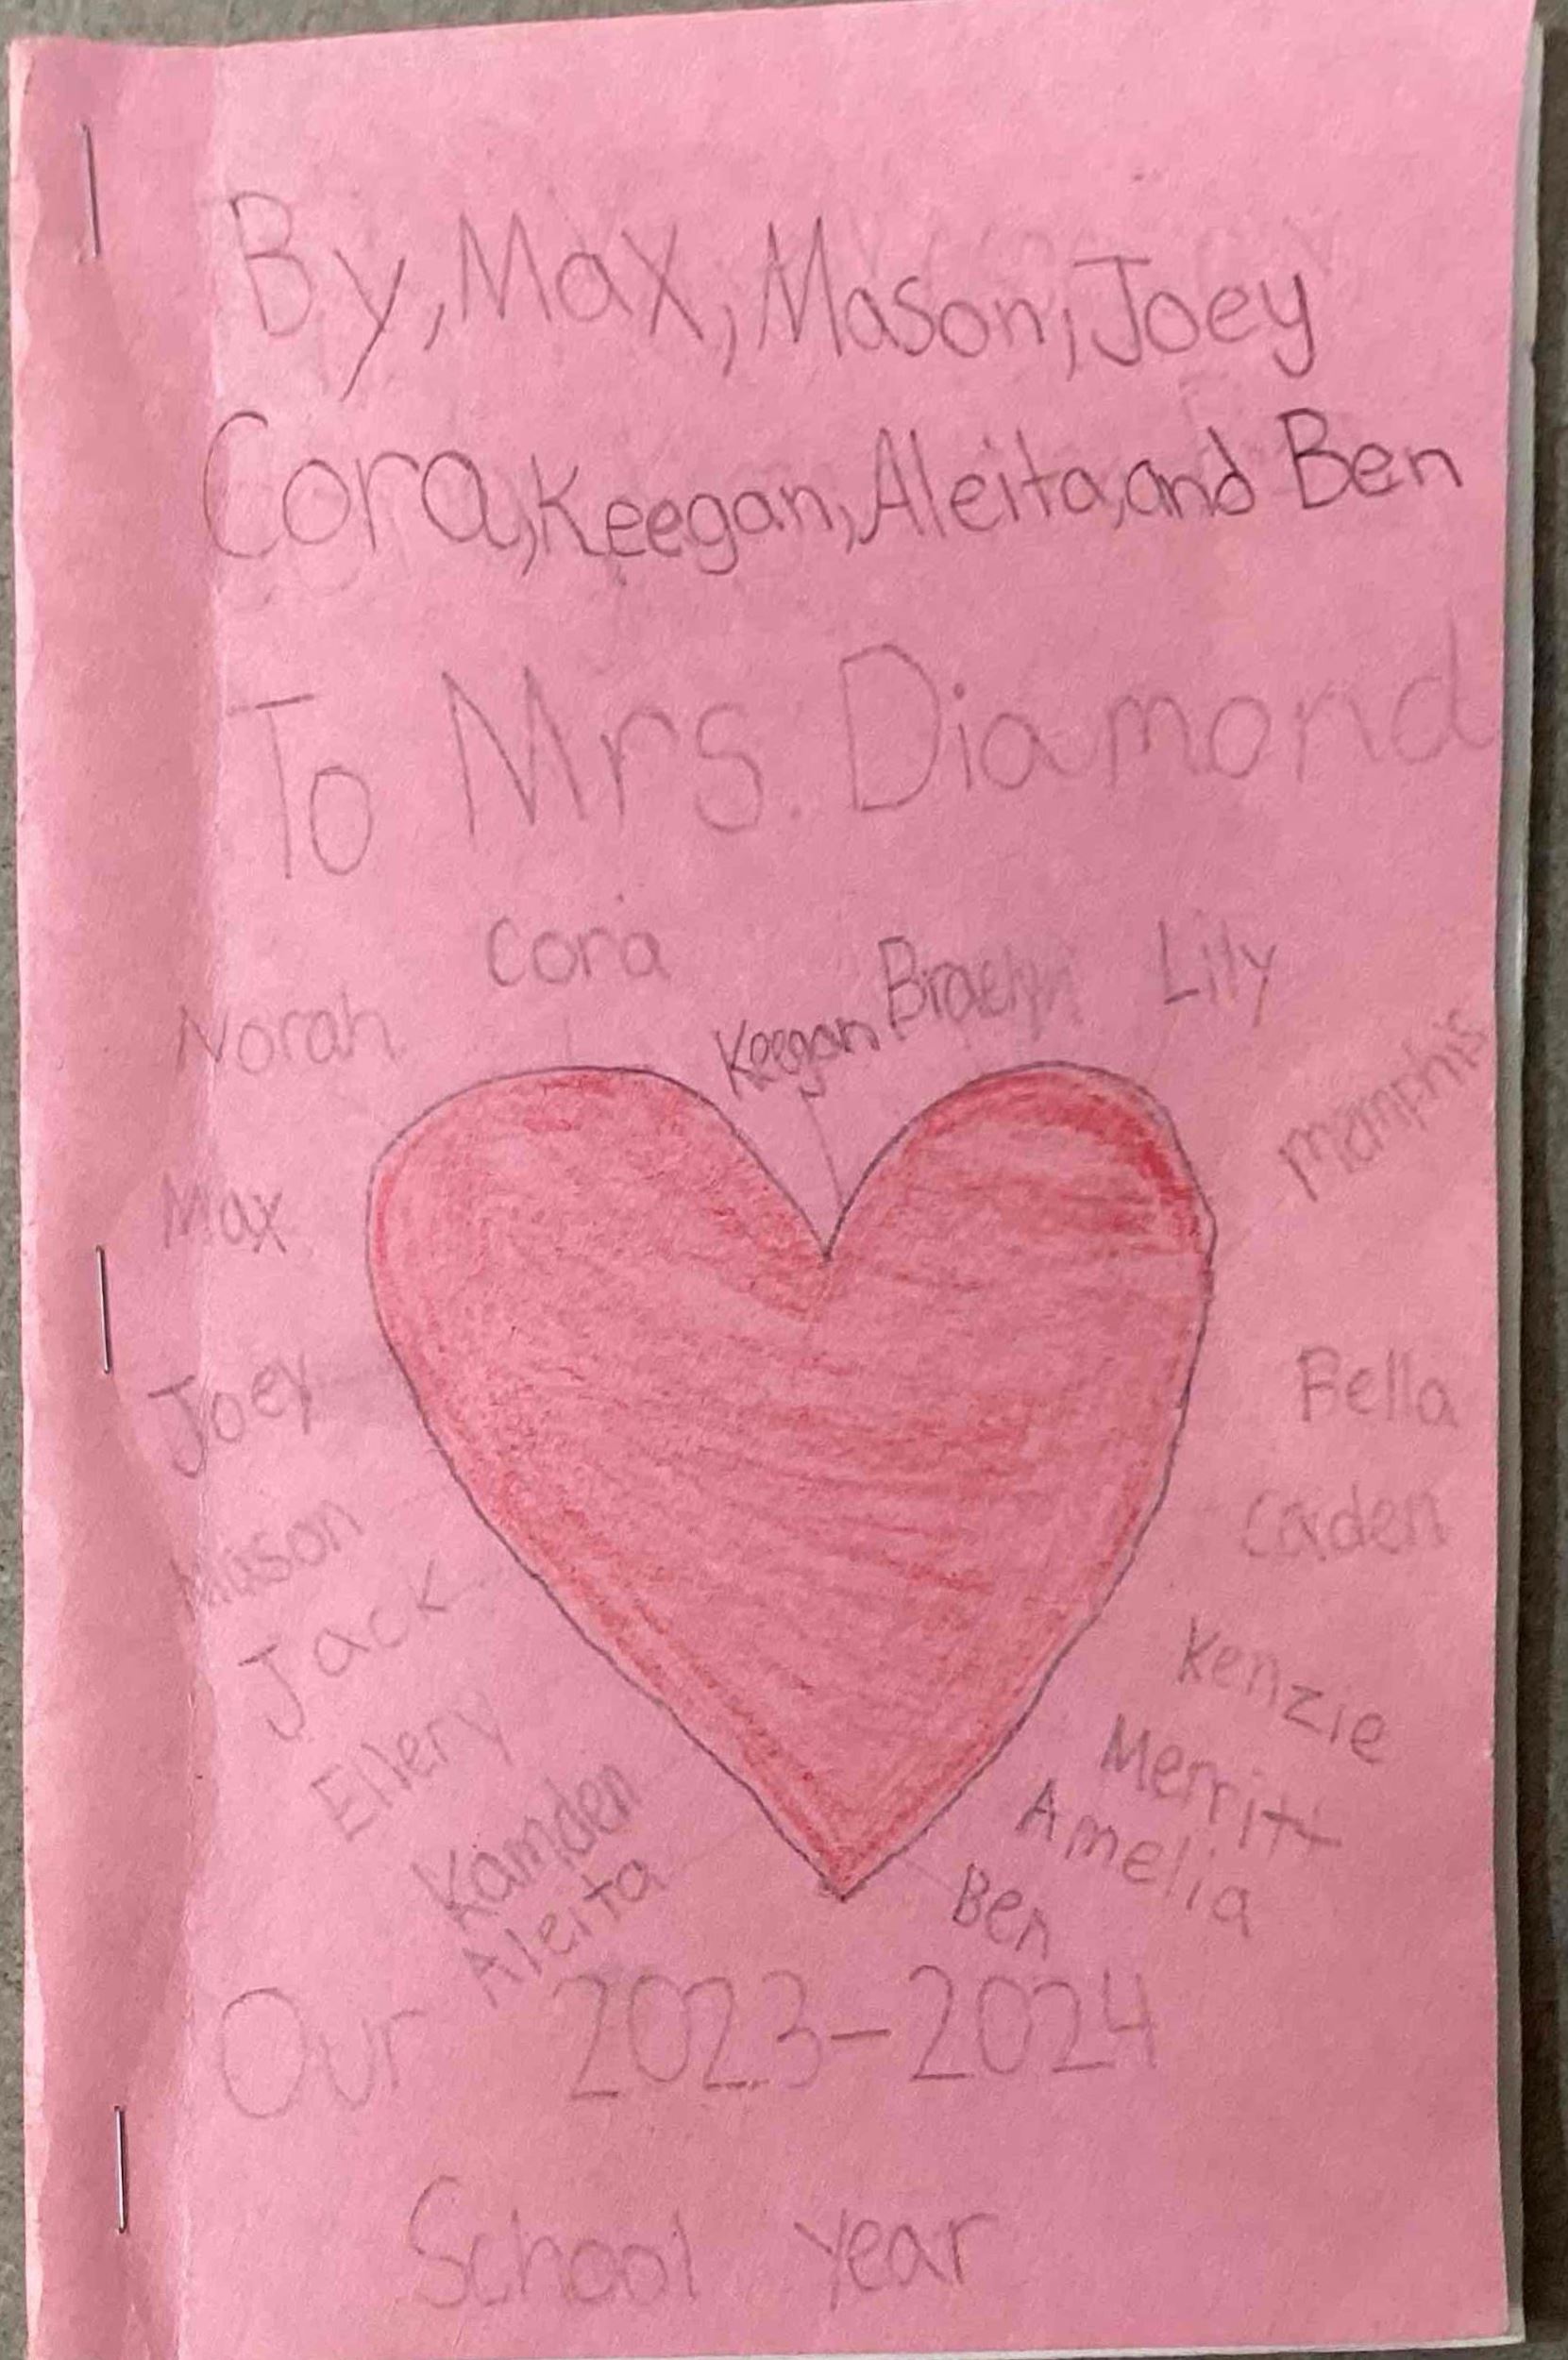 By, Max, Mason, Joey
Cora, Keegan, Aleita, and Ben
To Mrs. Diamond
Cora
Keegan
Braelyn
Lily
Norah
Memphis
Max
Joey
Bella
Mason
Caden
Jack
Kenzie
Ellery
Merritt
Kamden
Amelia
Aleita
Ben
Our 2023-2024
School year